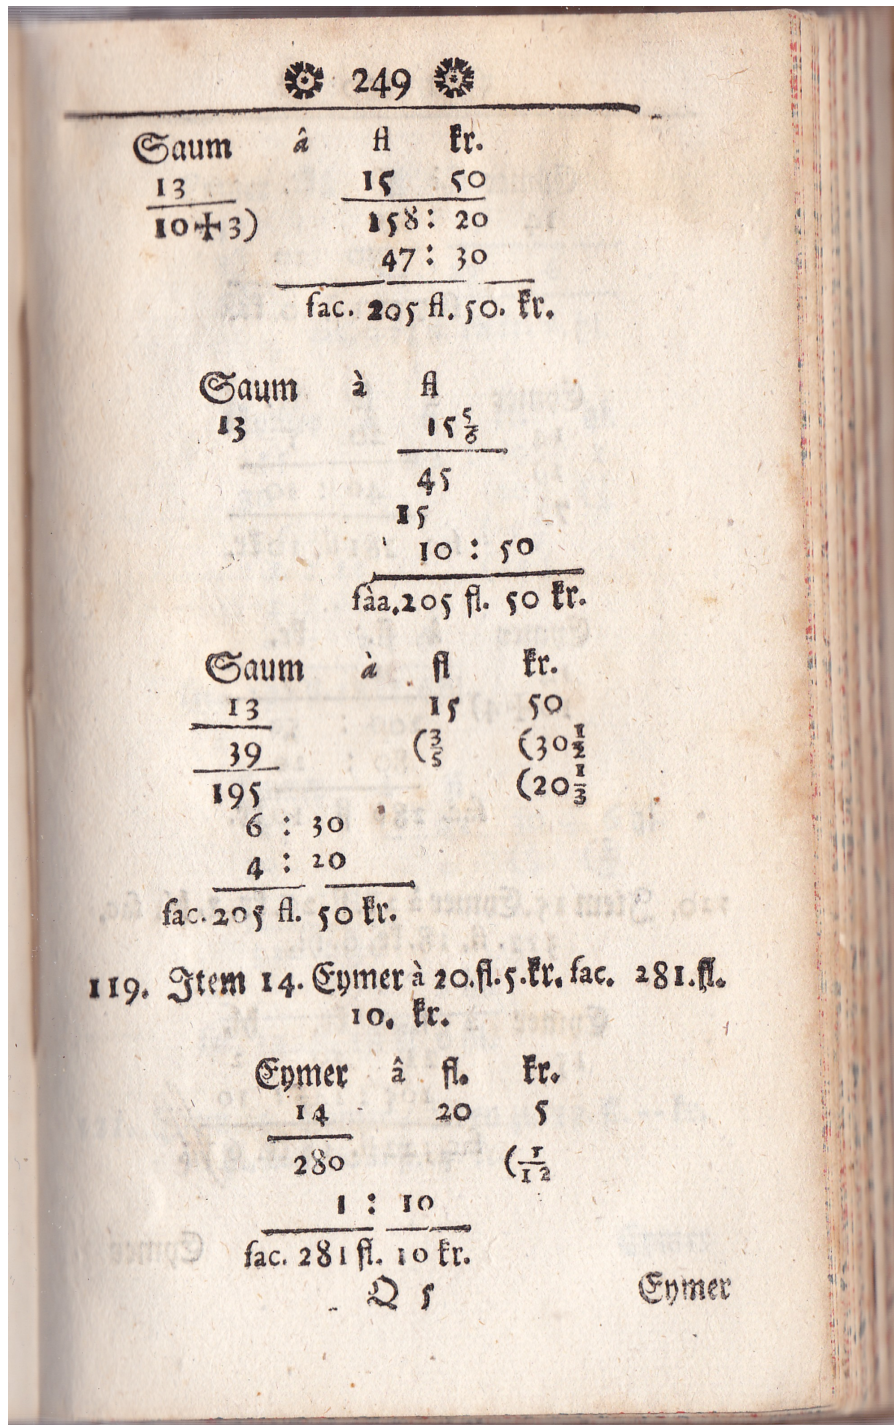 249
Saum â fl kr.
13 15 50
10+3) 158: 20
47: 30
fac. 205 fl. 50. kr.
Saum à fl
13 15 5/6
45
15
10 : 50
fàa. 205 fl. 50 kr.
Saum à fl kr.
13 15 50
39 (3/5 (30 1/2
195 (20 1/3
6 : 30
4 : 20
fac. 205 fl. 50 kr.
119. Item 14. Eymer à 20. fl. 5. kr. fac. 281. fl.
10. kr.
Eymer â fl. kr.
14 20 5
280 (1/12
1 : 10
fac. 281 fl. 10 kr.
Q 5 Eymer